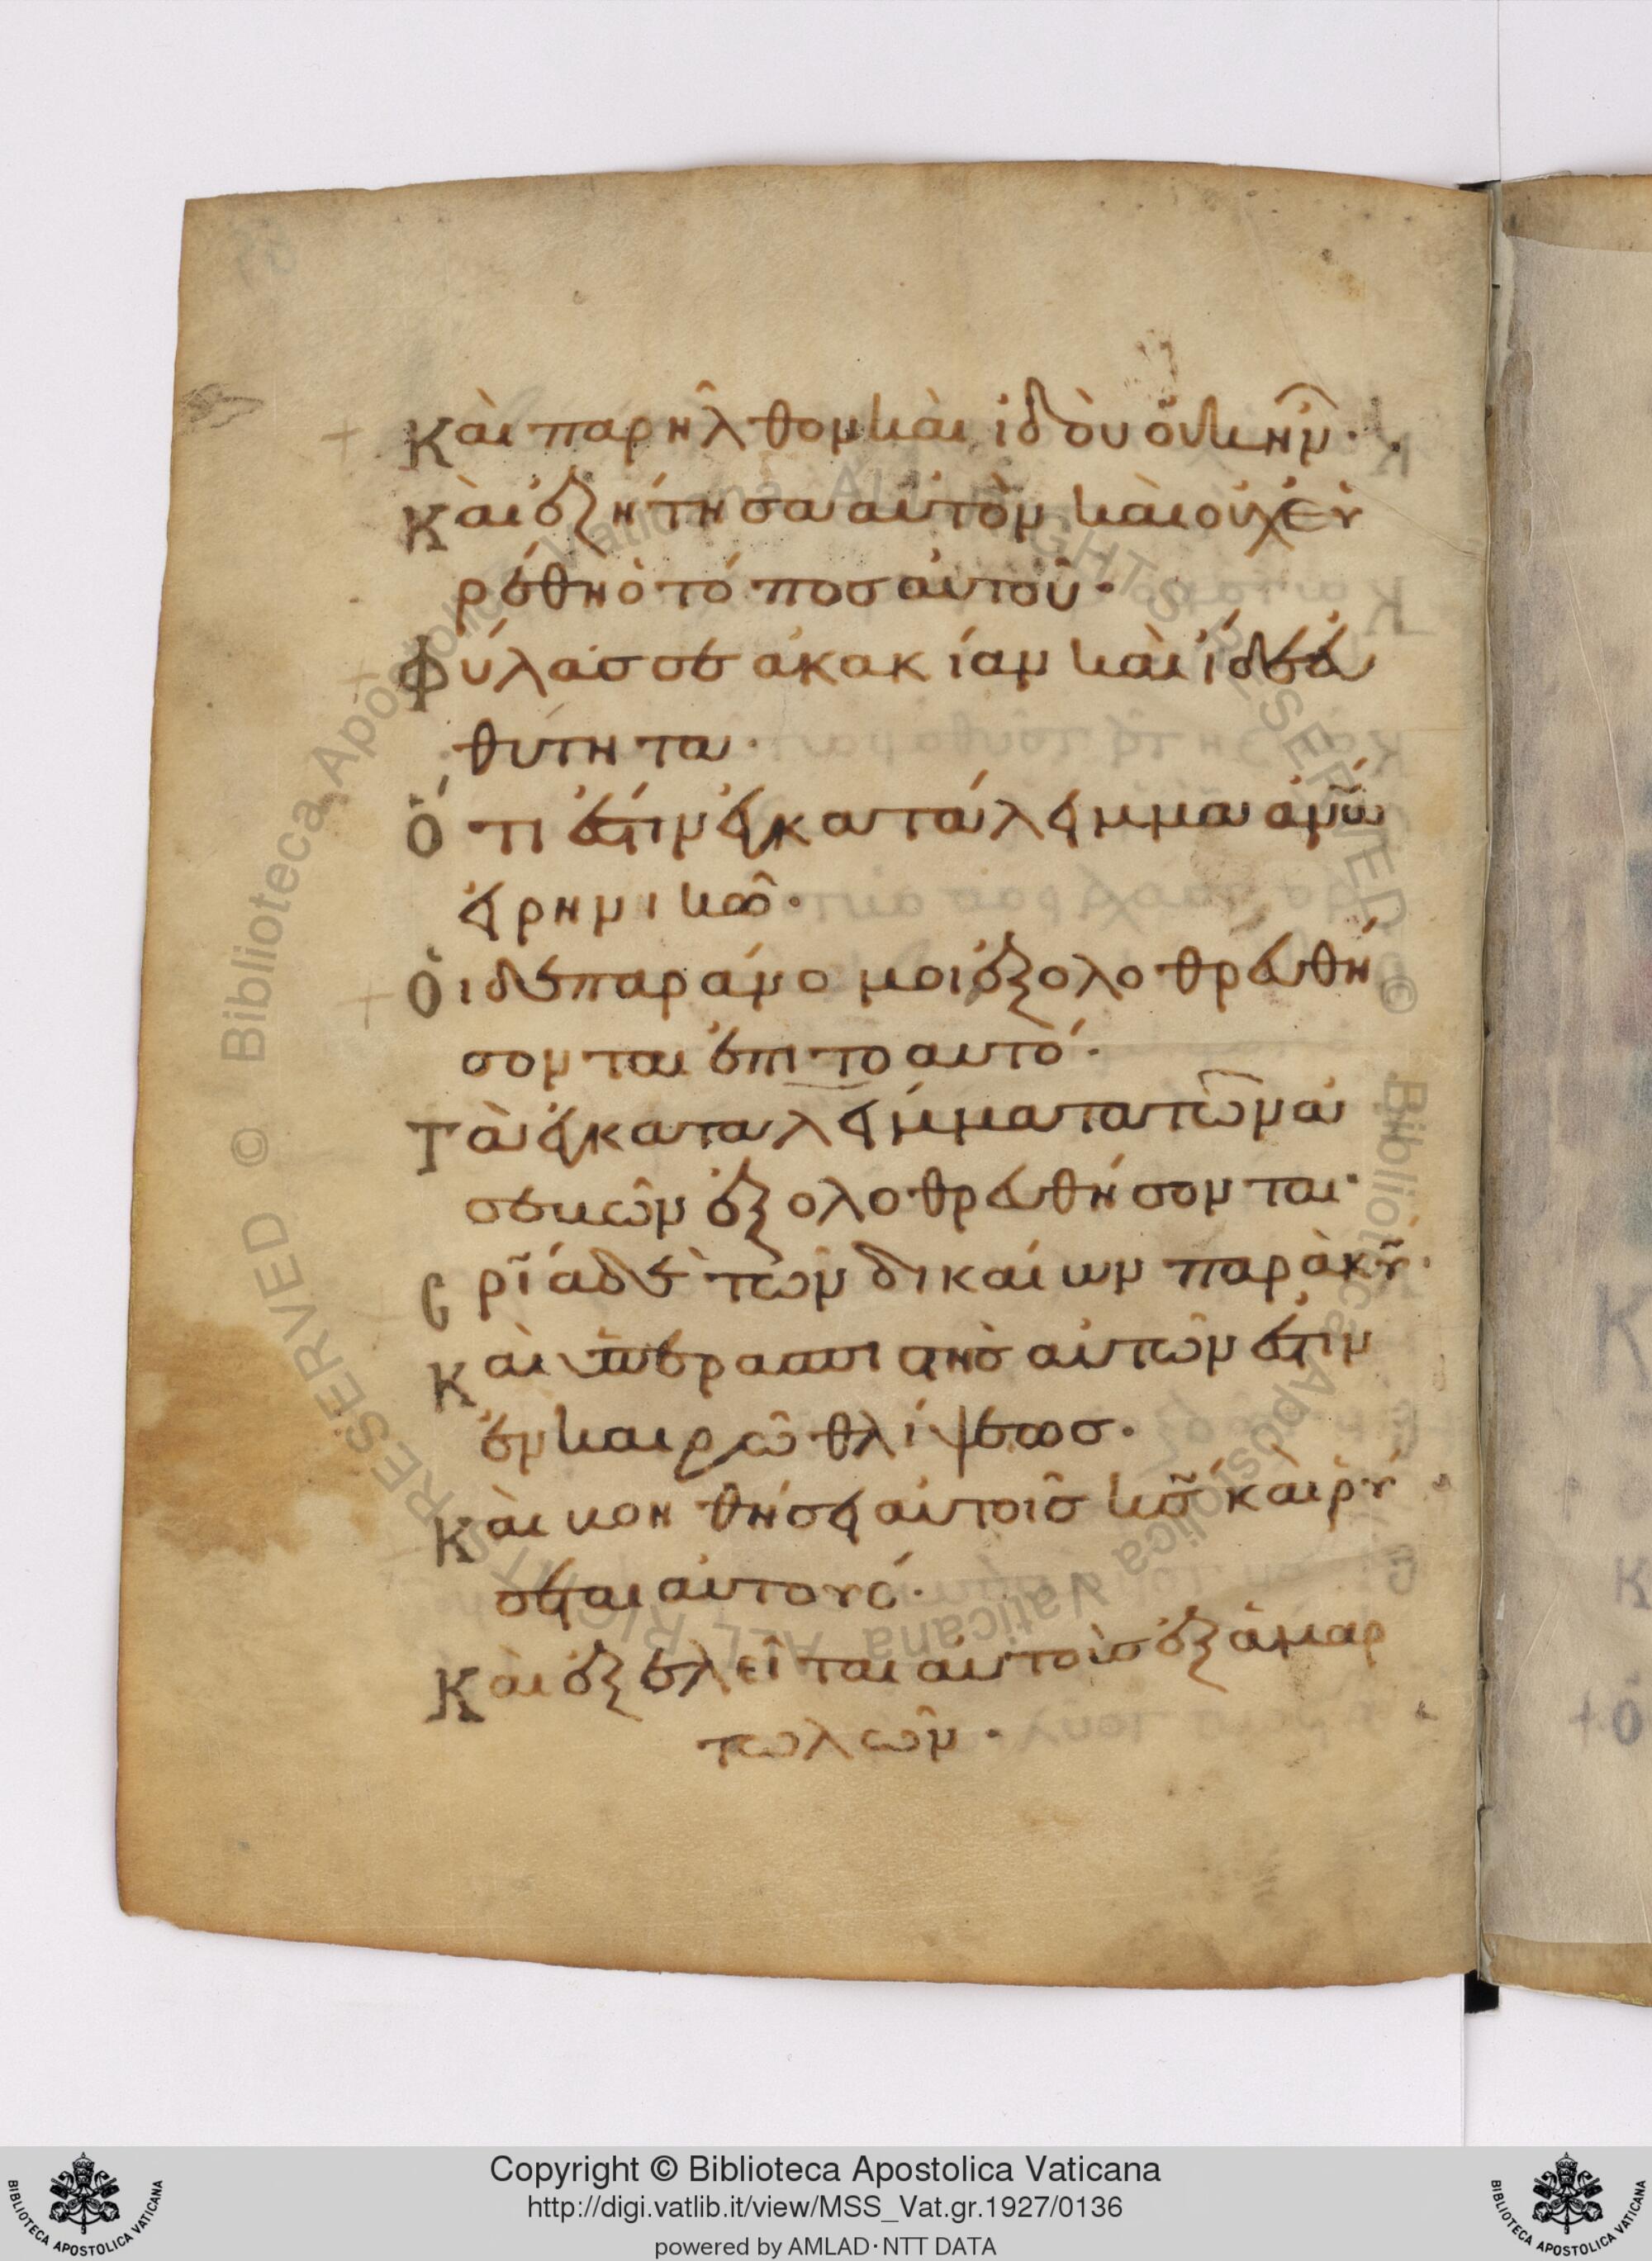 Καὶ παρῆλθον καὶ ἰδοὺ οὐκ ἦν·
Καὶ ἐζήτησα αὐτὸν καὶ οὐχ εὑ
ρέθη ὁ τόπος αὐτοῦ·
Φύλασσε ἀκακίαν καὶ ἴδε εὐ
θύτητα·
Ὅτι ἐστὶν ἐγκατάλειμμα ἀνῶ
εἰρηνικῶ·
Οἱ δὲ παράνομοι ἐξολοθρευθή
σονται ἐπιτοαυτό·
Τὰ ἐγκαταλείμματα τῶν ἀ
σεβῶν ἐξολοθρευθήσονται·
Σρία δὲ τῶν δικαίων παρὰ κυ·
Καὶ ὑπερασπιστὴς αὐτῶν ἐστὶν
ἐν καιρῶ θλίψεως·
Καὶ βοηθήσει αὐτοῖς κς καὶ ῥύ
σεται αὐτούς·
Καὶ ἐξελεῖται αὐτοὺς ἐξ ἁμαρ
τωλῶν·
Copyright © Biblioteca Apostolica Vaticana
http://digi.vatlib.it/view/MSS_Vat.gr.1927/0136
powered by AMLAD·NTT DATA
BIBLIOTECA APOSTOLICA VATICANA
BIBLIOTECA APOSTOLICA VATICANA